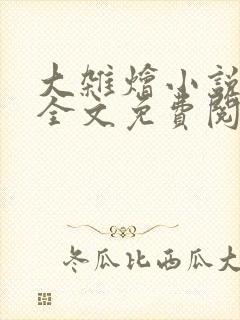 大雜燴小說
全文免費閱
冬瓜比西瓜大